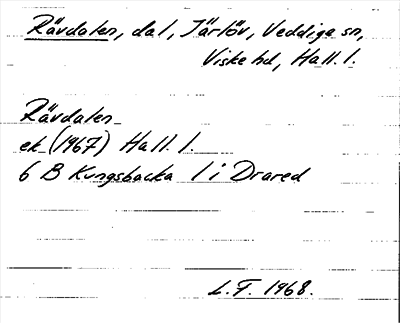 Rävdalen, dal, Järlöv, Veddige sn,
Viske hd, Hall. l.
Rävdalen
ek. (1967) Hall. l.
6 B Kungsbacka 1 i Drared
L.F. 1968.